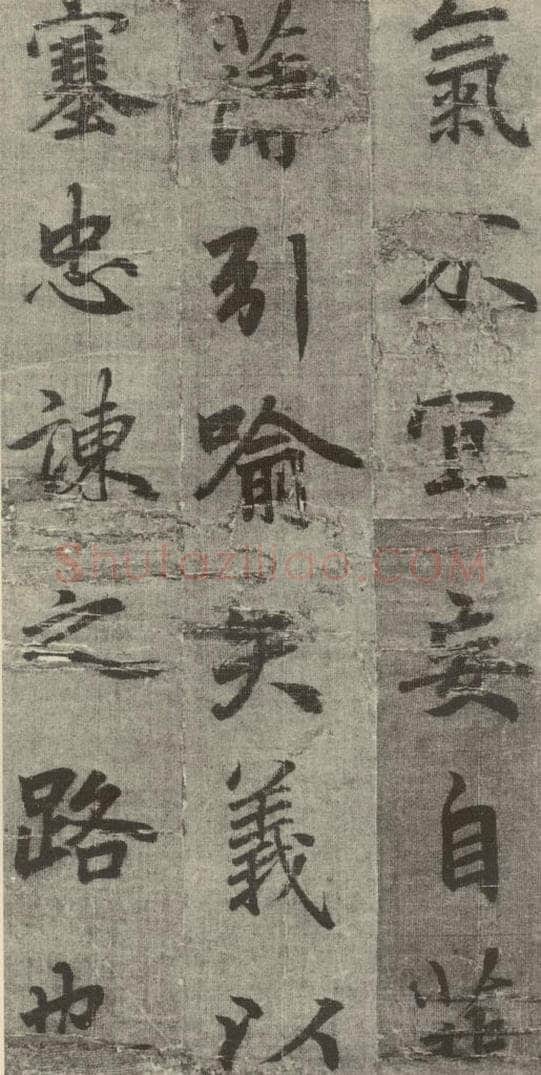 氣不宜妄自菲
薄引喻失義以
塞忠諫之路也
Shufaziliao.COM